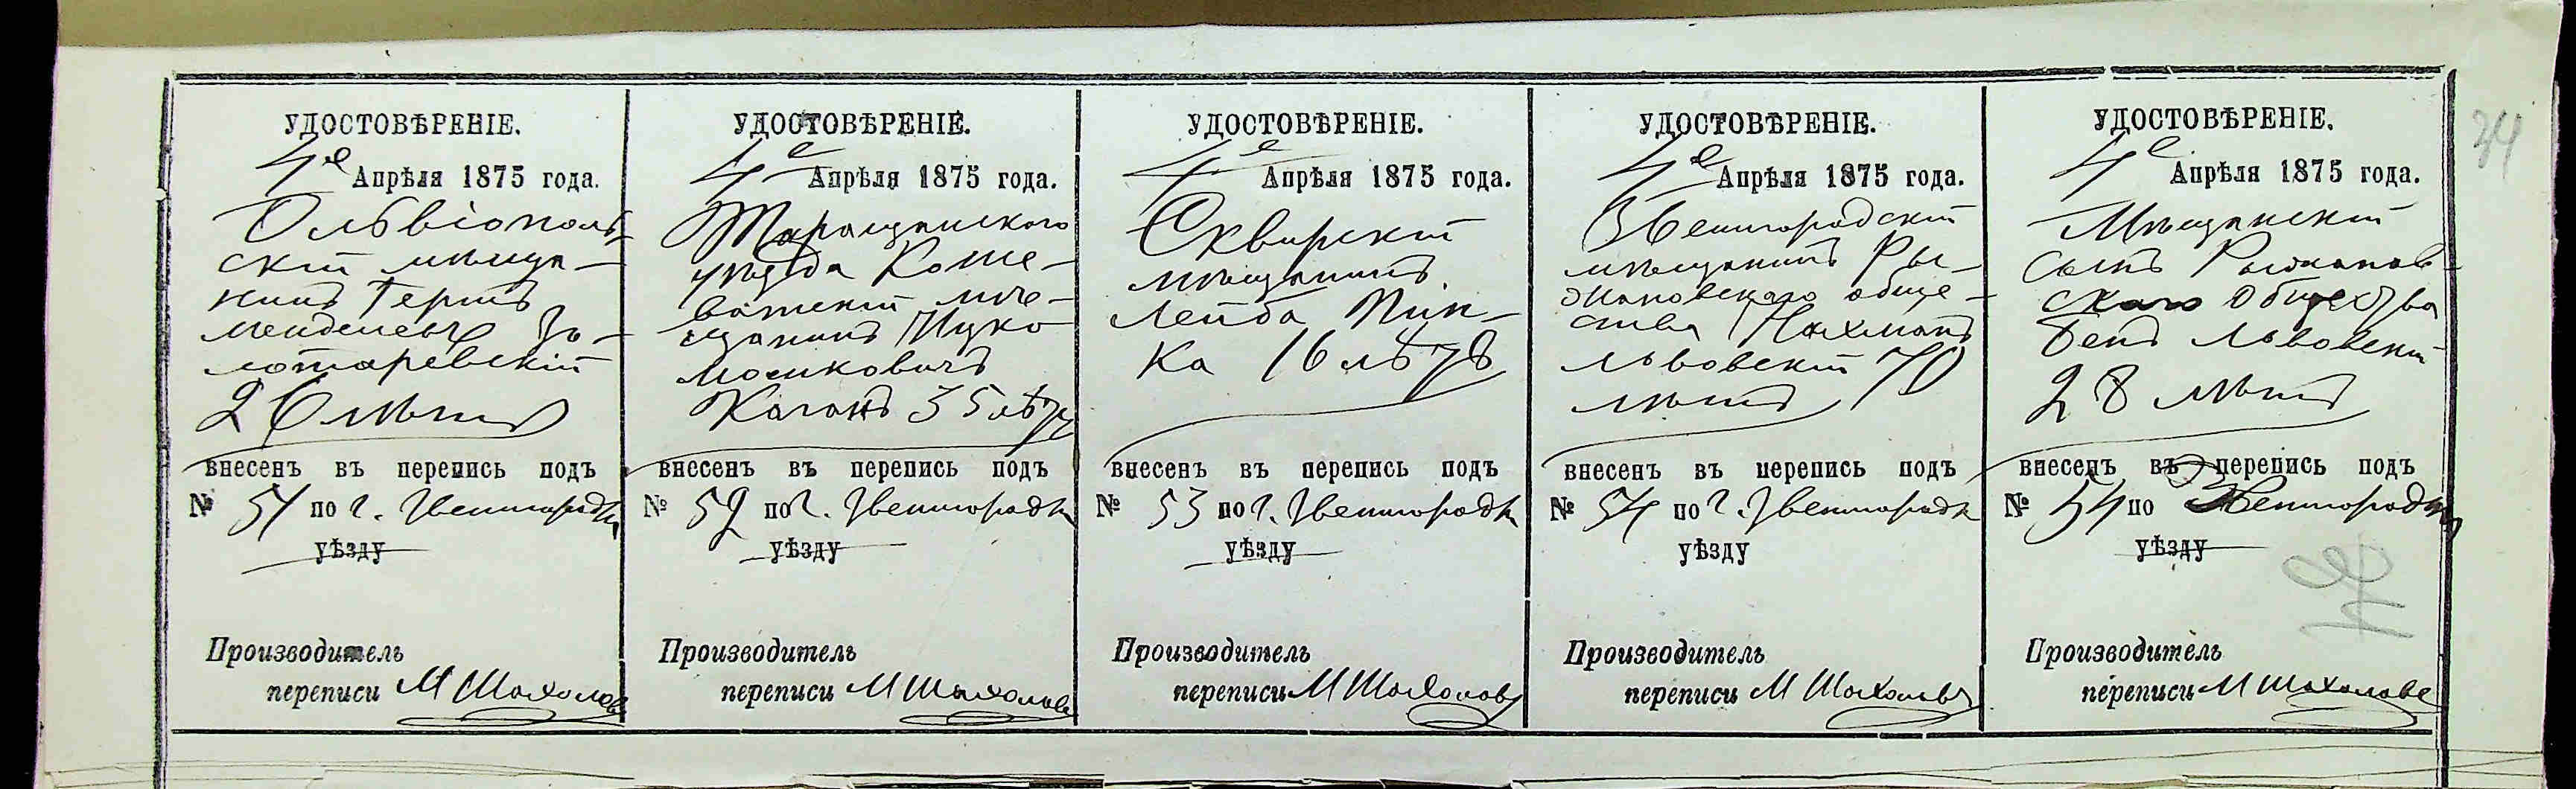 34
УДОСТОВѢРЕНІЕ.
4е Апрѣля 1875 года.
Ольвіополь-
скій мѣща-
нинъ Гершъ
Менделевъ Зо-
лотаревскій
26 лѣтъ
внесенъ въ перепись подъ
№ 51 по г. Звенигородкѣ
уѣзду
Производитель
переписи М Шахолов
УДОСТОВѢРЕНІЕ.
4е Апрѣля 1875 года.
Таращанского
уѣзда Коше-
ватскій мѣ-
щанинъ Ицко
Мошковичъ
Каганъ 35 лѣтъ
внесенъ въ перепись подъ
№ 52 по г. Звенигородкѣ
уѣзду
Производитель
переписи М Шахолов
УДОСТОВѢРЕНІЕ.
4е Апрѣля 1875 года.
Сквирскій
мѣщанинъ
Лейба Пин-
ка 16 лѣтъ
внесенъ въ перепись подъ
№ 53 по г. Звенигородкѣ
уѣзду
Производитель
переписи М Шахолов
УДОСТОВѢРЕНІЕ.
4е Апрѣля 1875 года.
Звенигородскій
мѣщанинъ Ры-
жановского обще-
ства Нахманъ
Львовскій 70
лѣтъ
внесенъ въ перепись подъ
№ 54 по г. Звенигородкѣ
уѣзду
Производитель
переписи М Шахолов
УДОСТОВѢРЕНІЕ.
4е Апрѣля 1875 года.
Мѣщанскій
сынъ Рыжанов-
скаго Общества
Бенъ Львовскій
28 лѣтъ
внесенъ въ перепись подъ
№ 54 по Звенигородкѣ
уѣзду
Производитель
переписи М Шахолов